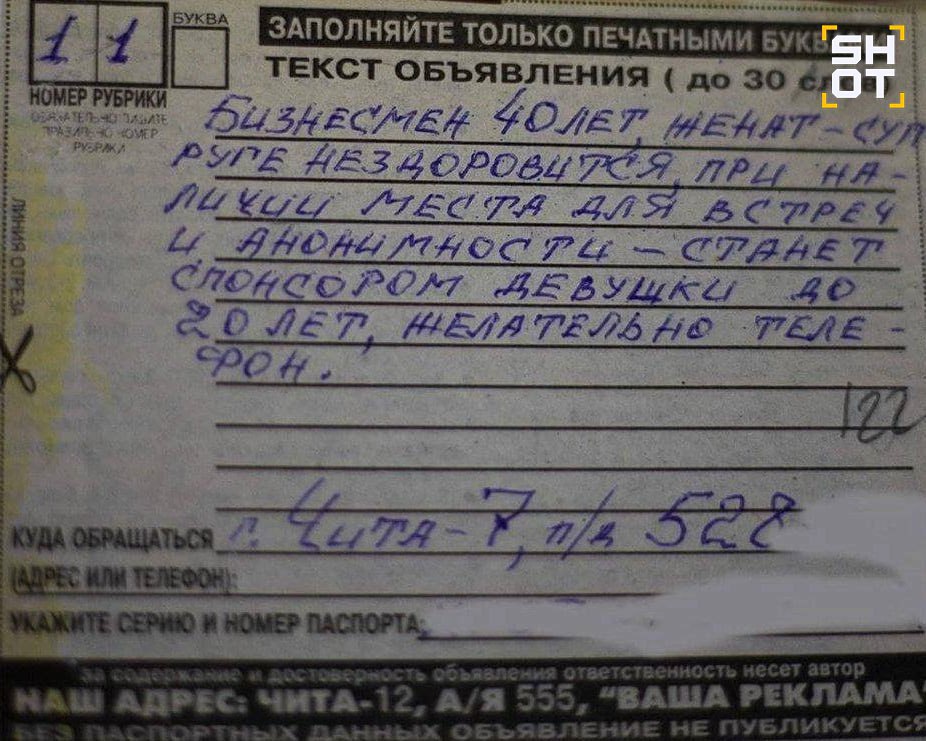 1 1
БУКВА
ЗАПОЛНЯЙТЕ ТОЛЬКО ПЕЧАТНЫМИ
SHOT
ТЕКСТ ОБЪЯВЛЕНИЯ ( до 30
НОМЕР РУБРИКИ
ОБЯЗАТЕЛЬНО ПИШИТЕ
НОМЕР
РУБРИКИ
БИЗНЕСМЕН 40 ЛЕТ, ЖЕНАТ – СУП
РУГЕ НЕЗДОРОВИТСЯ, ПРИ НА-
ЛИЧИИ МЕСТА ДЛЯ ВСТРЕЧ
И АНОНИМНОСТИ – СТАНЕТ
СПОНСОРОМ ДЕВУШКИ ДО
20 ЛЕТ, ЖЕЛАТЕЛЬНО ТЕЛЕ-
ФОН.
ЛИНИЯ ОТРЕЗА
122
КУДА ОБРАЩАТЬСЯ г. Чита-7, п/д
(АДРЕС ИЛИ ТЕЛЕФОН):
УКАЖИТЕ СЕРИЮ И НОМЕР ПАСПОРТА:
За содержание и достоверность объявления ответственность несет автор
НАШ АДРЕС: ЧИТА-12, А/Я 555, "ВАША РЕКЛАМА"
БЕЗ ПАСПОРТНЫХ ДАННЫХ ОБЪЯВЛЕНИЕ НЕ ПУБЛИКУЕТСЯ